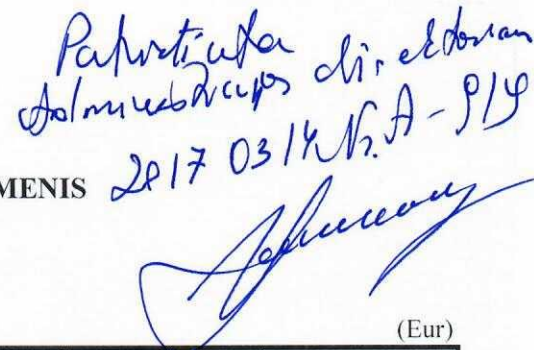 Patvirtinta
Administracijos direktoriaus
2017 03 14 Nr. A-919
MENIS
(Eur)